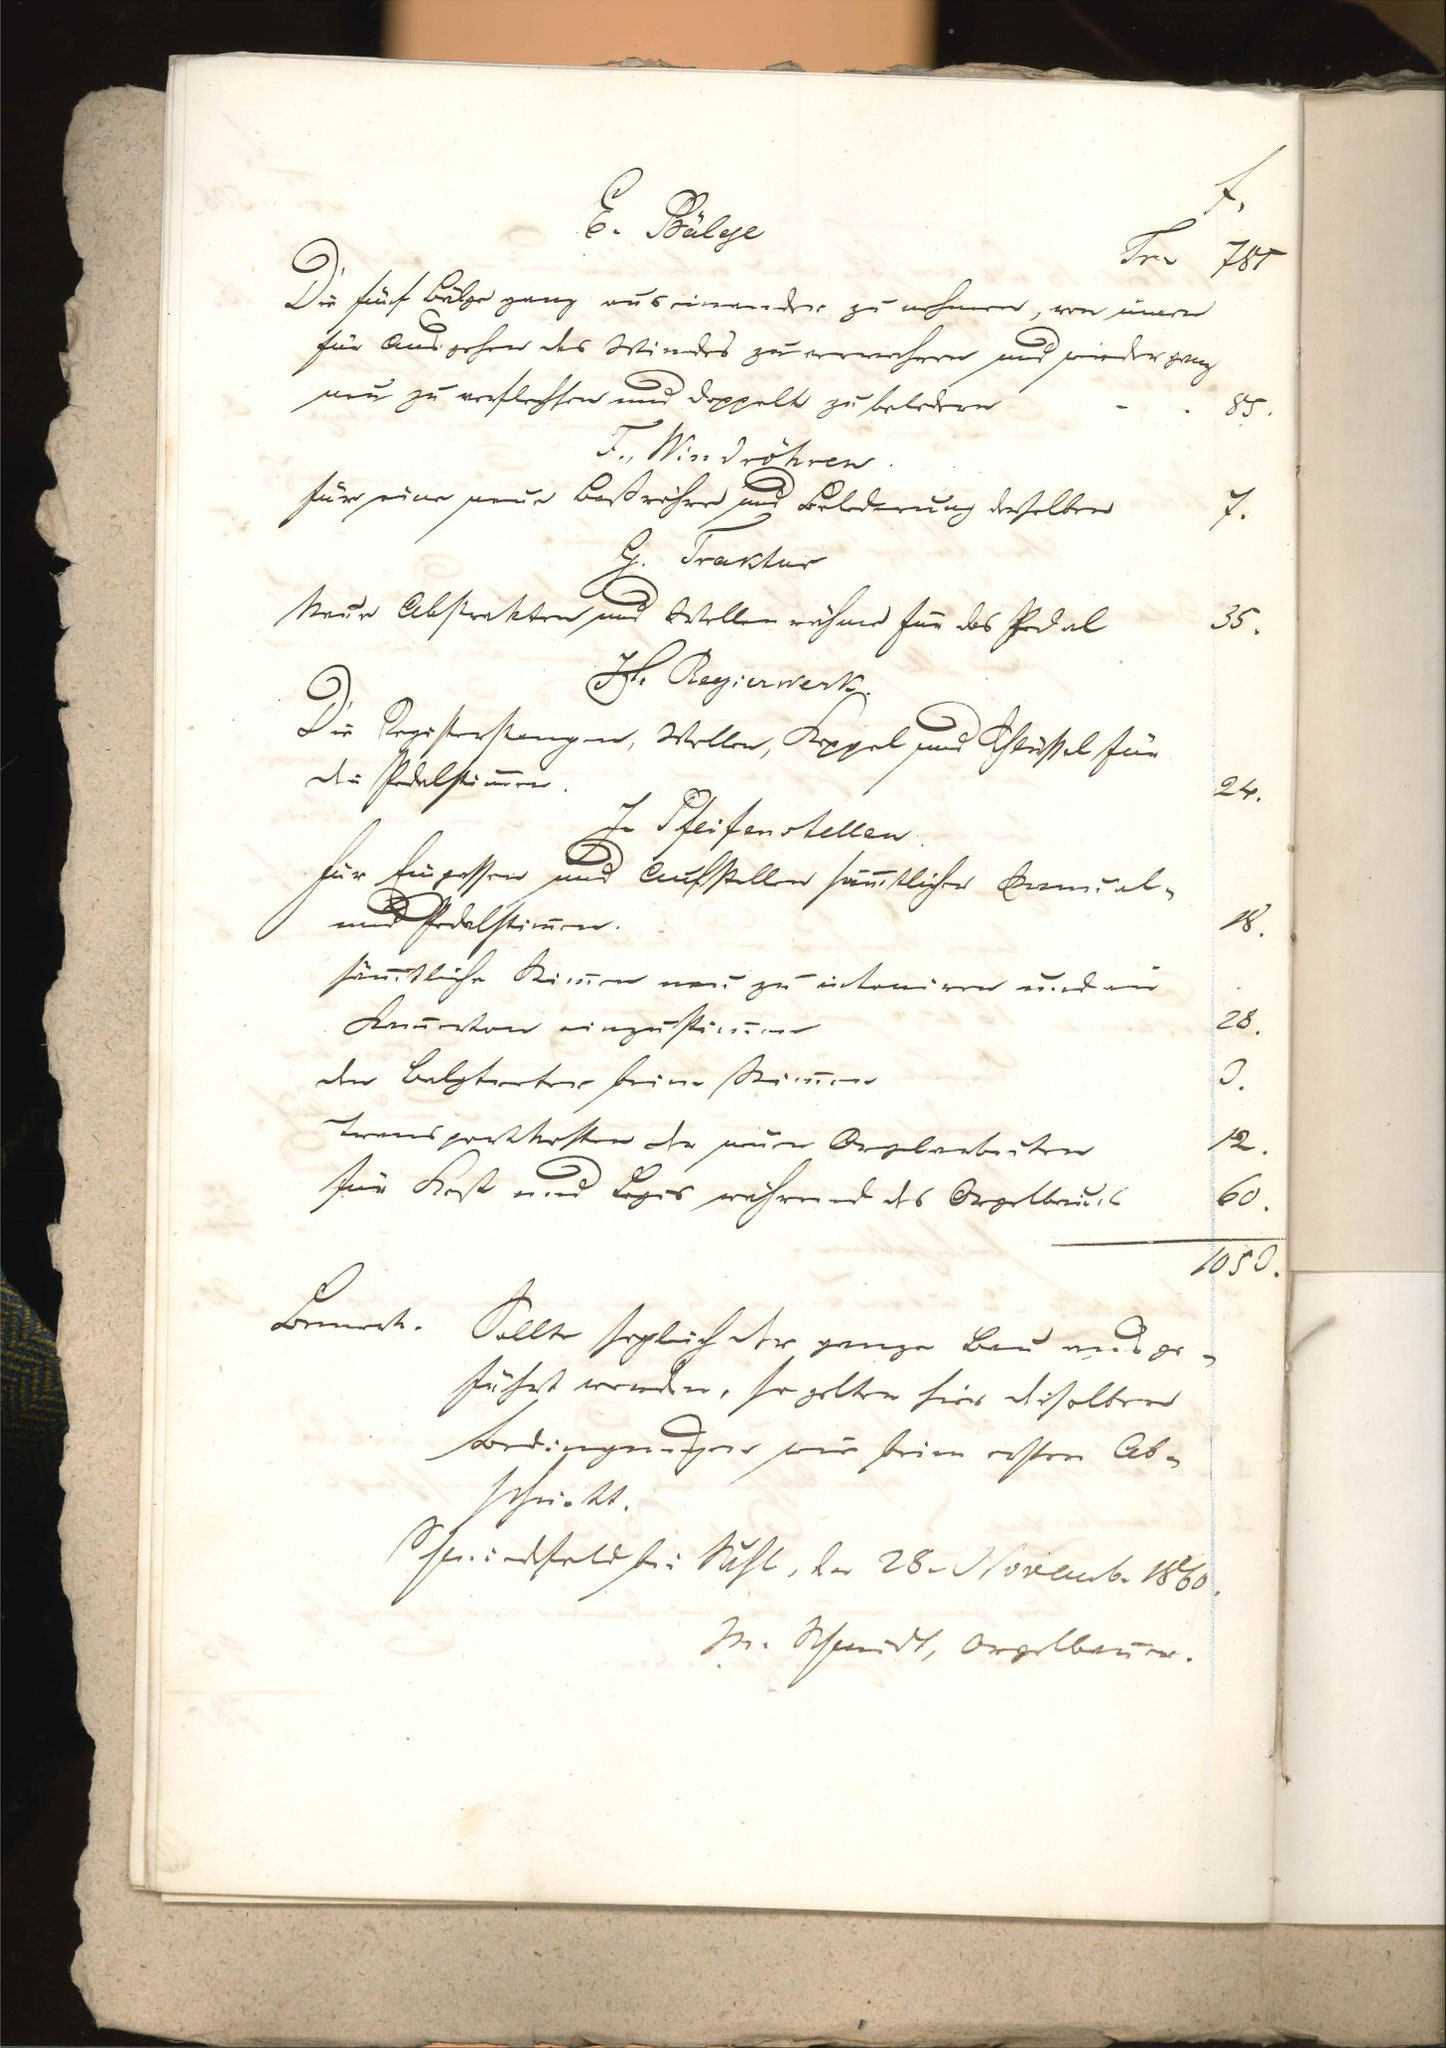 f.
E. Bälge
Tr. 781
Die fünf Bälge ganz auseinander zu nehmen, von innen
für Ausgehen des Windes zu verwahren und wieder ganz
neu zu verflechsen und doppelt zu beledern - . 85.
F., Windröhren.
für eine neue Baßröhre und Belederung derselben 7.
G. Traktur
Neue Abstrakten und Wellenrähme für das Pedal 35.
H. Regierwerk.
Die Registerstangen, Wellen, Koppel und Schlüssel für
die Pedalstim̄en. 24.
J. Pfeifenstellen.
für Einpassen und Aufstellen säm̄tlicher Manual-
und Pedalstim̄en. 18.
säm̄tliche Stim̄en neu zu intoniren und in
Kam̄erton einzustim̄en 28.
der Balgtreter beim Stim̄en
Transportkosten der neuen Orgelarbeiten 12.
für Kost und Logis während des Orgelbaues 60.
Bemerk. Sollte sogleich der ganze Bau ausge-
führt werden, so gelten hier dieselben
Bedingungen wie beim ersten Ab-
schnitt.
Schmiedefeld bei Suhl, den 28. Novemb. 1860.
M. Schmidt, Orgelbauer.